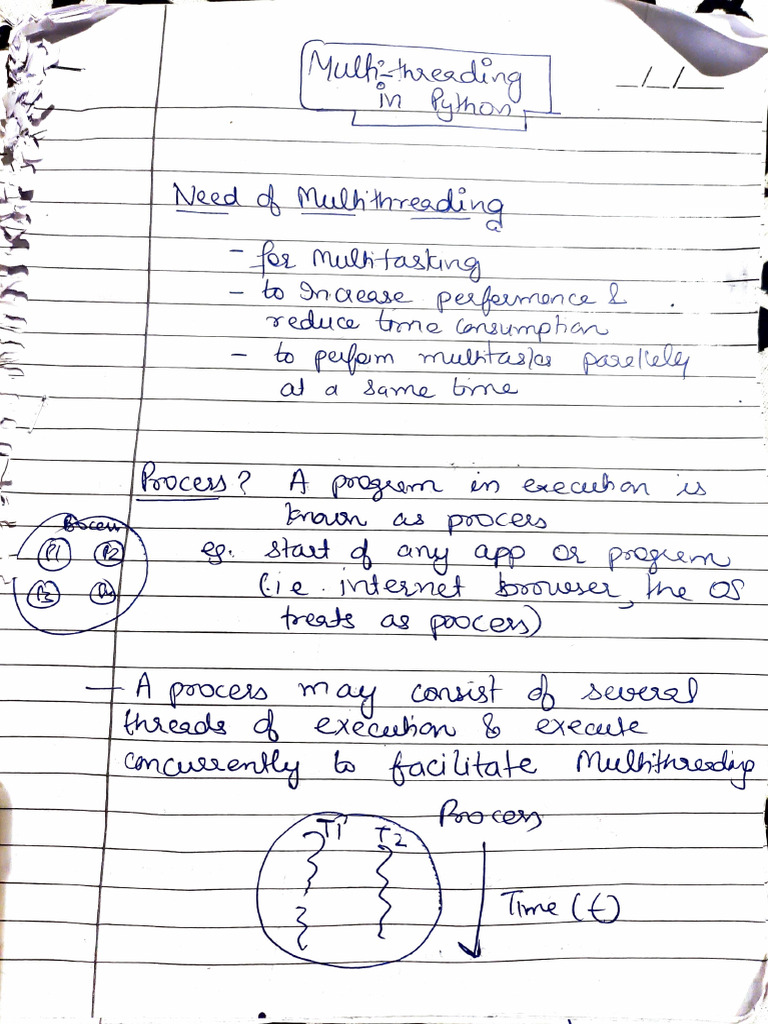 Multi-threading
in Python
Need of Multithreading
- for multitasking
- to Increase performence &
reduce time consumption
- to perform multitasks parellely
at a same time
Process? A program in execution is
known as process
eg. start of any app or program
(i.e. internet browser, the OS
treats as process)
Process
P1 P2
P3
— A process may consist of several
threads of execution & execute
concurrently to facilitate Multithreading
Process
T1 T2
Time (t)